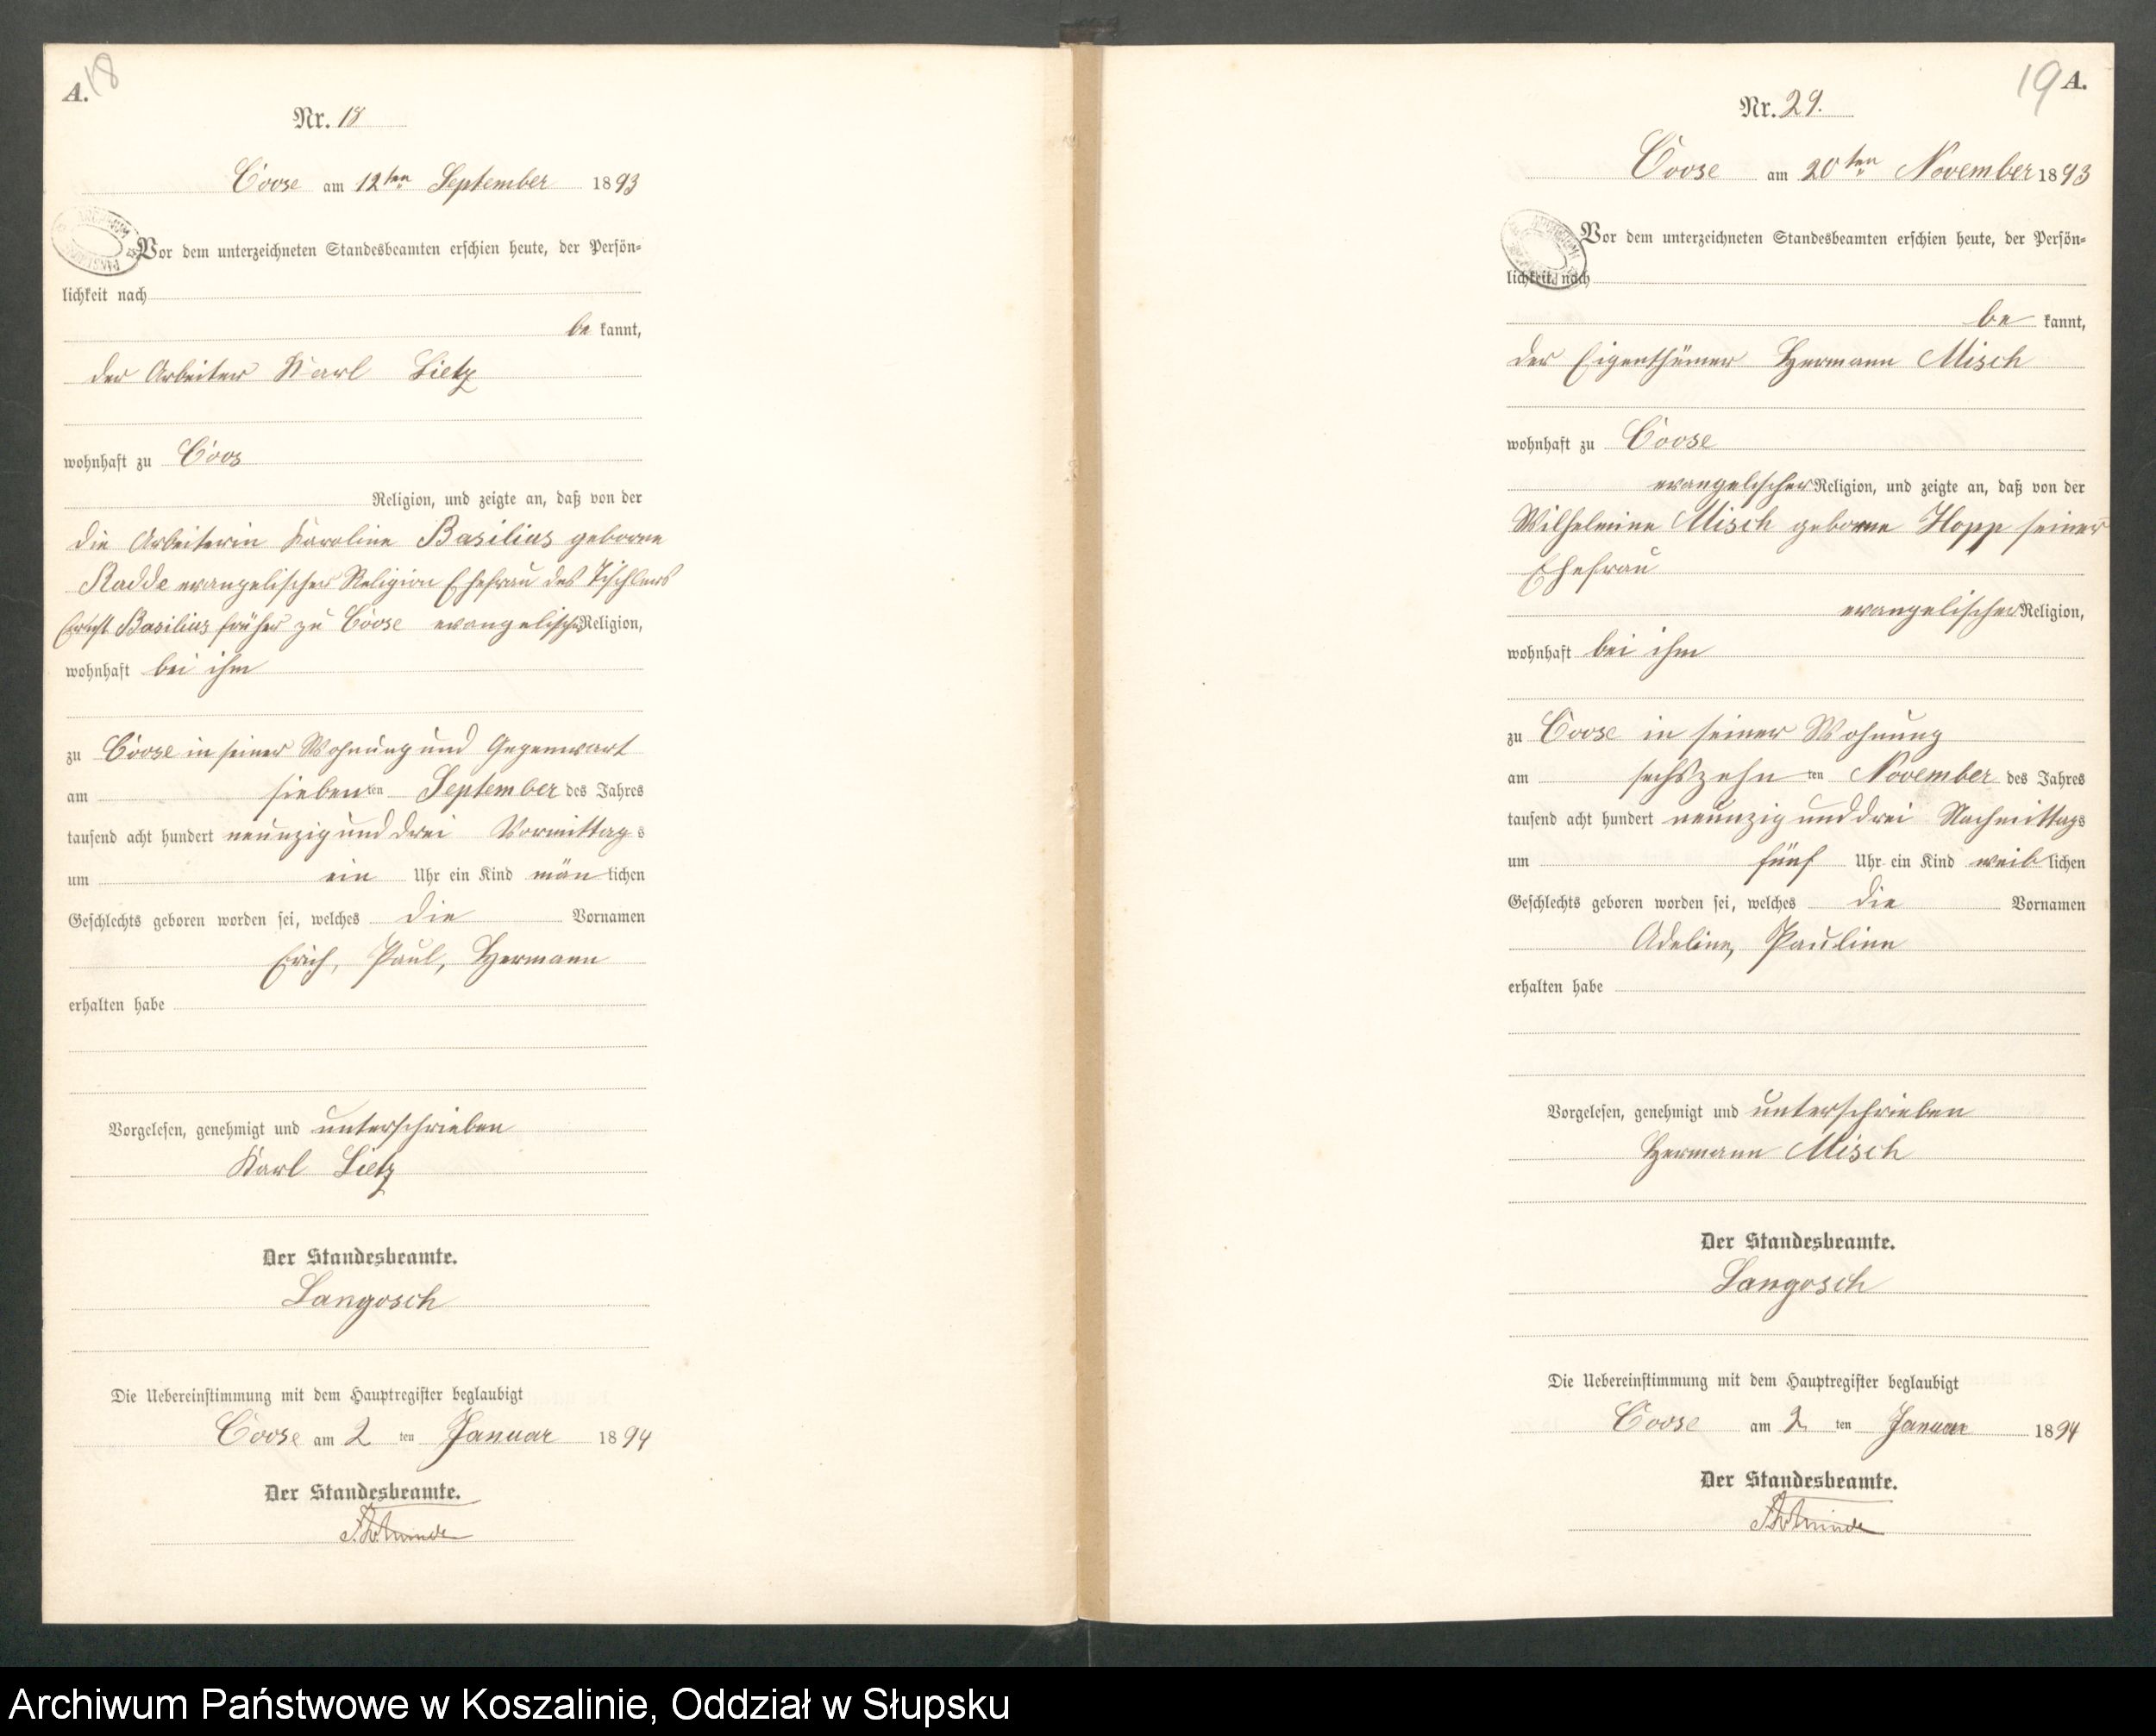 A. 18
Nr. 18
Coose am 12ten September 1893
Vor dem unterzeichneten Standesbeamten erschien heute, der Persön-
lichkeit nach
be kannt,
der Arbeiter Karl Lietz
wohnhaft zu Coos
Religion, und zeigte an, daß von der
die Arbeiterin Karoline Basilius geborne
Radde evangelischer Religion Ehefrau des Tischlers
Basilius früher zu Coose evangelischer Religion,
wohnhaft bei ihm
zu Coose in seiner Wohnung und Gegenwart
am siebenten September des Jahres
tausend acht hundert neunzig und drei Vormittags
um ein Uhr ein Kind män lichen
Geschlechts geboren worden sei, welches die Vornamen
Erich, Paul, Hermann
erhalten habe
Vorgelesen, genehmigt und unterschrieben
Karl Lietz
Der Standesbeamte.
Langosch
Die Uebereinstimmung mit dem Hauptregister beglaubigt
Coose am 2 ten Januar 1894
Der Standesbeamte.
19 A.
Nr. 29.
Coose am 20ten November 1893
Vor dem unterzeichneten Standesbeamten erschien heute, der Persön-
lichkeit nach
be kannt,
der Eigenthümer Hermann Misch
wohnhaft zu Coose
evangelischer Religion, und zeigte an, daß von der
Wilhelmine Misch geborne Hopp seiner
Ehefrau
evangelischer Religion,
wohnhaft bei ihm
zu Coose in seiner Wohnung
am sechszehn ten November des Jahres
tausend acht hundert neunzig und drei Nachmittags
um fünf Uhr ein Kind weib lichen
Geschlechts geboren worden sei, welches die Vornamen
Adeline, Pauline
erhalten habe
Vorgelesen, genehmigt und unterschrieben
Hermann Misch
Der Standesbeamte.
Langosch
Die Uebereinstimmung mit dem Hauptregister beglaubigt
Coose am 2 ten Januar 1894
Der Standesbeamte.
Archiwum Państwowe w Koszalinie, Oddział w Słupsku